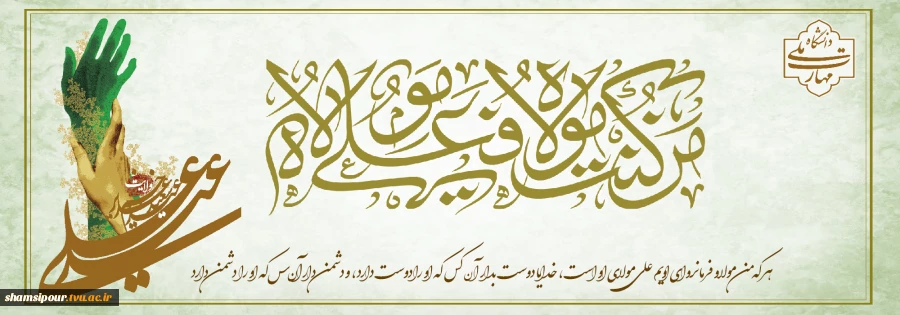 دانشگاه ملی مهارت
من کنت مولاه فهذا علی مولاه
هر که من مولا و فرمانروای اویم علی مولای او است، خدایا دوست بدار آن کس که او را دوست دارد، و دشمن دار آن کس که او را دشمن دارد
عید
علی
ولایت
shamsipour.tvu.ac.ir